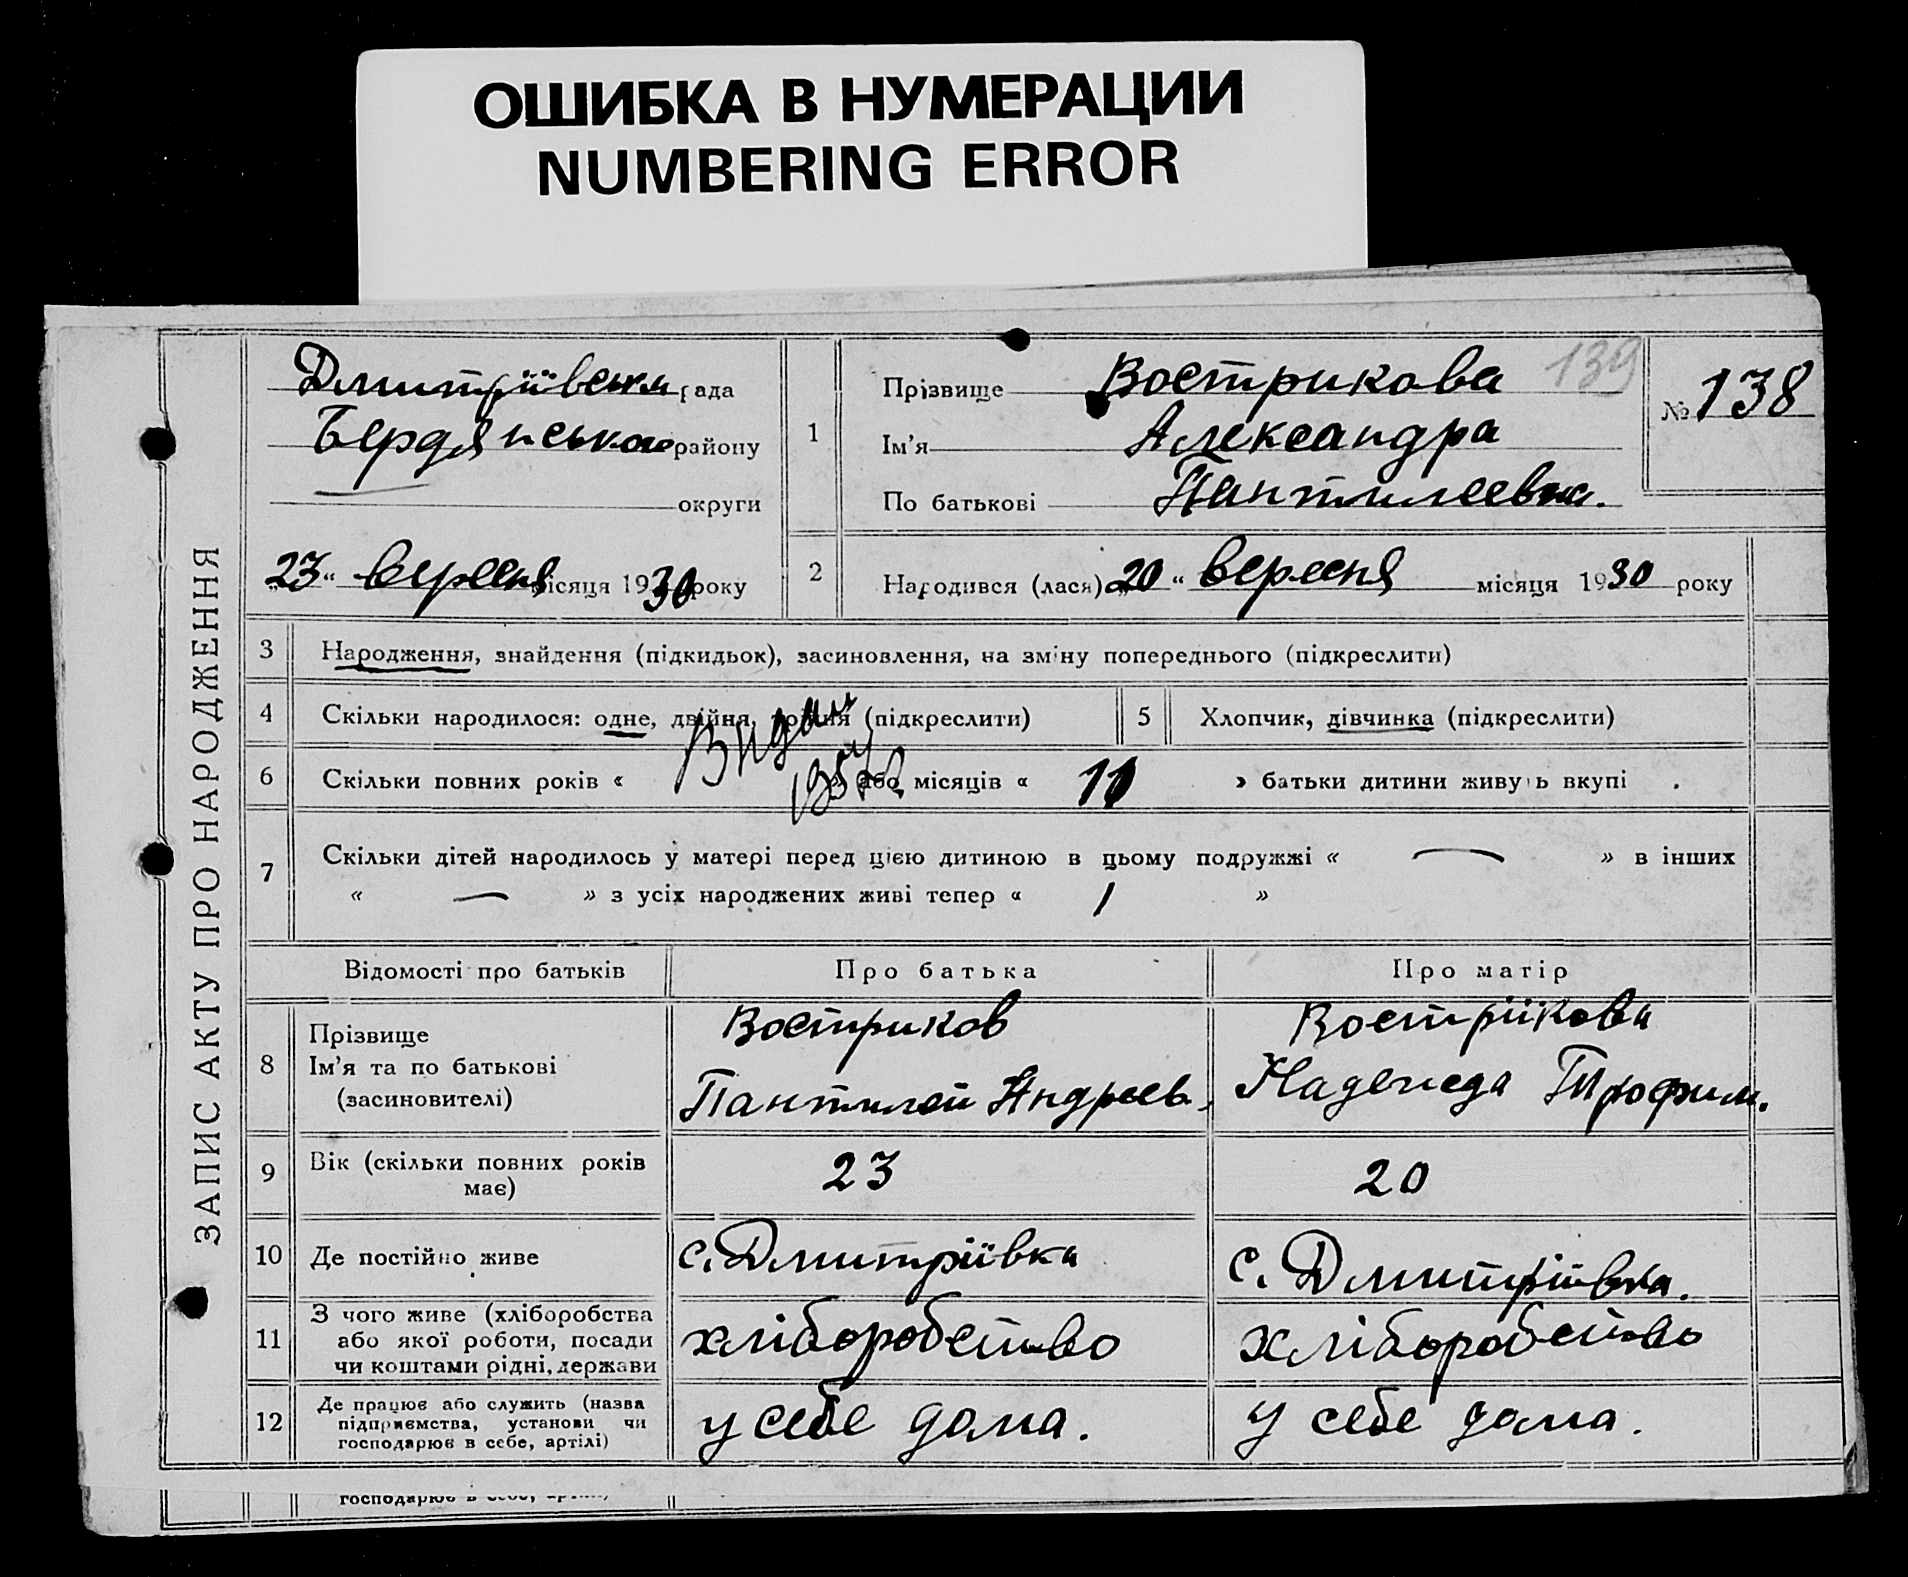 ОШИБКА В НУМЕРАЦИИ
NUMBERING ERROR
ЗАПИС АКТУ ПРО НАРОДЖЕННЯ
Дмитріївська рада
Бердянського району
округи
23 " вересня місяця 1930 року
1
Прізвище Вострикова 139
Ім'я Александра
По батькові Пантилеевна.
№ 138
2 Народився (лася) „20 " вересня місяця 1930 року
3 Народження, знайдення (підкидьок), засиновлення, на зміну попереднього (підкреслити)
4 Скільки народилося: одне, двійня, трійня (підкреслити) 5 Хлопчик, дівчинка (підкреслити)
6 Скільки повних років « » або місяців « 11 » батьки дитини живуть вкупі .
7 Скільки дітей народилось у матері перед цією дитиною в цьому подружжі « — » в інших
« — » з усіх народжених живі тепер « 1 »
Відомості про батьків Про батька Про матір
8 Прізвище Востриков Вострікова
Ім'я та по батькові Пантилей Андреев. Надежда Трофим.
(засиновителі)
9 Вік (скільки повних років 23 20
має)
10 Де постійно живе с. Дмитріївка с. Дмитріївка.
11 З чого живе (хліборобства хліборобство хліборобство
або якої роботи, посади
чи коштами рідні, держави
12 Де працює або служить (назва у себе дома. у себе дома.
підприємства, установи чи
господарює в себе, артілі)
господарює в себе, артілі)